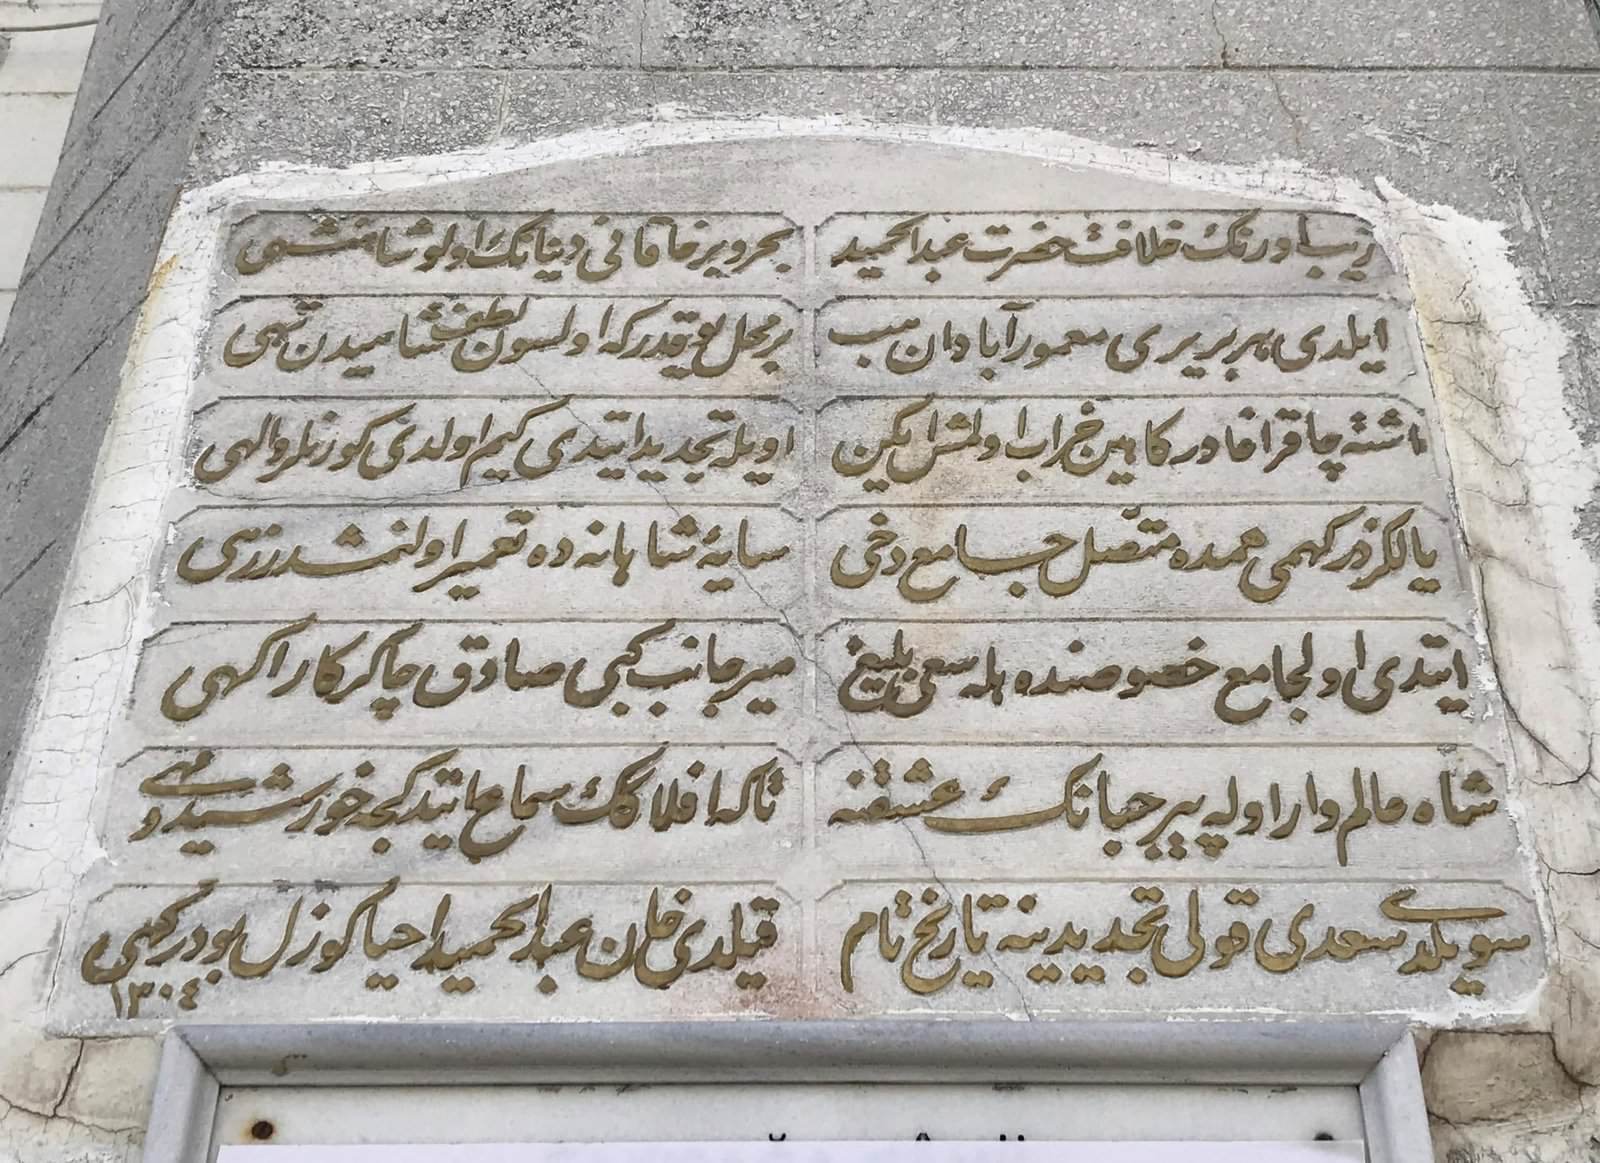 زیب اورنك خلافت حضرت عبدالحمید
بحر و بر خاقانی دنیانك اولو شاهنشهی
ایلدی بربر یری معمور آبادان هب
بر محل یوقدر که اولسون لطف شاهیدن تهی
اشته چاقراغا دركاهین خراب اولمش ایكن
اویله تجدید ایتدی كیم اولدی كورنلر والهی
یالكز دركهمی همده متصل جامع دخی
سایهٔ شاهانه ده تعمیر اولنمشدر زهی
ایتدی اولجامع خصوصنده هله سعی بلیغ
میر جانب كبی صادق چاكر كار اكهی
شاه عالم وار اوله پیر جهانك عشقنه
تاكه افلاكك سماع ایتدكجه خورشید و مهی
سویلدی سعدی قولی تجدیدینه تاریخ تام
قیلدی خان عبدالحمید احیا كوزل بو دركهی
١٣٠٤